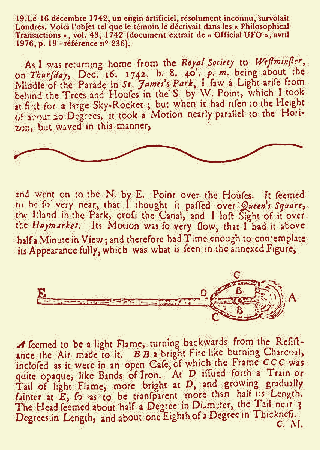 19.Le 16 décembre 1742, un engin artificiel, résolument inconnu, survolait
Londres. Voici l'objet tel que le témoin le décrivait dans les « Philosophical
Transactions », vol. 43, 1742 (document extrait de « Official UFO », avril
1976, p. 19 - référence n° 236).
AS I was returning home from the Royal Society to Westminster,
on Thursday, Dec. 16. 1742. h. 8. 40'. p. m. being about the
Middle of the Parade in St. James's Park, I saw a Light arise from
behind the Trees and Houses in the S by W. Point, which I took
at first for a large Sky-Rocket; but when it had risen to the Height
of about 20 Degrees, it took a Motion nearly parallel to the Hori-
zon, but waved in this manner,
and went on to the N. by E. Point over the Houses. It seemed
to be so very near, that I thought it passed over Queen's Square,
the Island in the Park, cross the Canal, and I lost Sight of it over
the Haymarket. Its Motion was so very slow, that I had it above
half a Minute in View; and therefore had Time enough to contemplate
its Appearance fully, which was what is seen in the annexed Figure,
E D C B C B C A
A seemed to be a light Flame, turning backwards from the Resist-
ance the Air made to it. B B a bright Fire like burning Charcoal,
inclosed as it were in an open Case, of which the Frame C C C was
quite opaque, like Bands of Iron. At D issued forth a Train or
Tail of light Flame, more bright at D, and growing gradually
fainter at E, so as to be transparent more than half its Length.
The Head seemed about half a Degree in Diameter, the Tail near 3
Degrees in Length, and about one Eighth of a Degree in Thickness.
C. M.